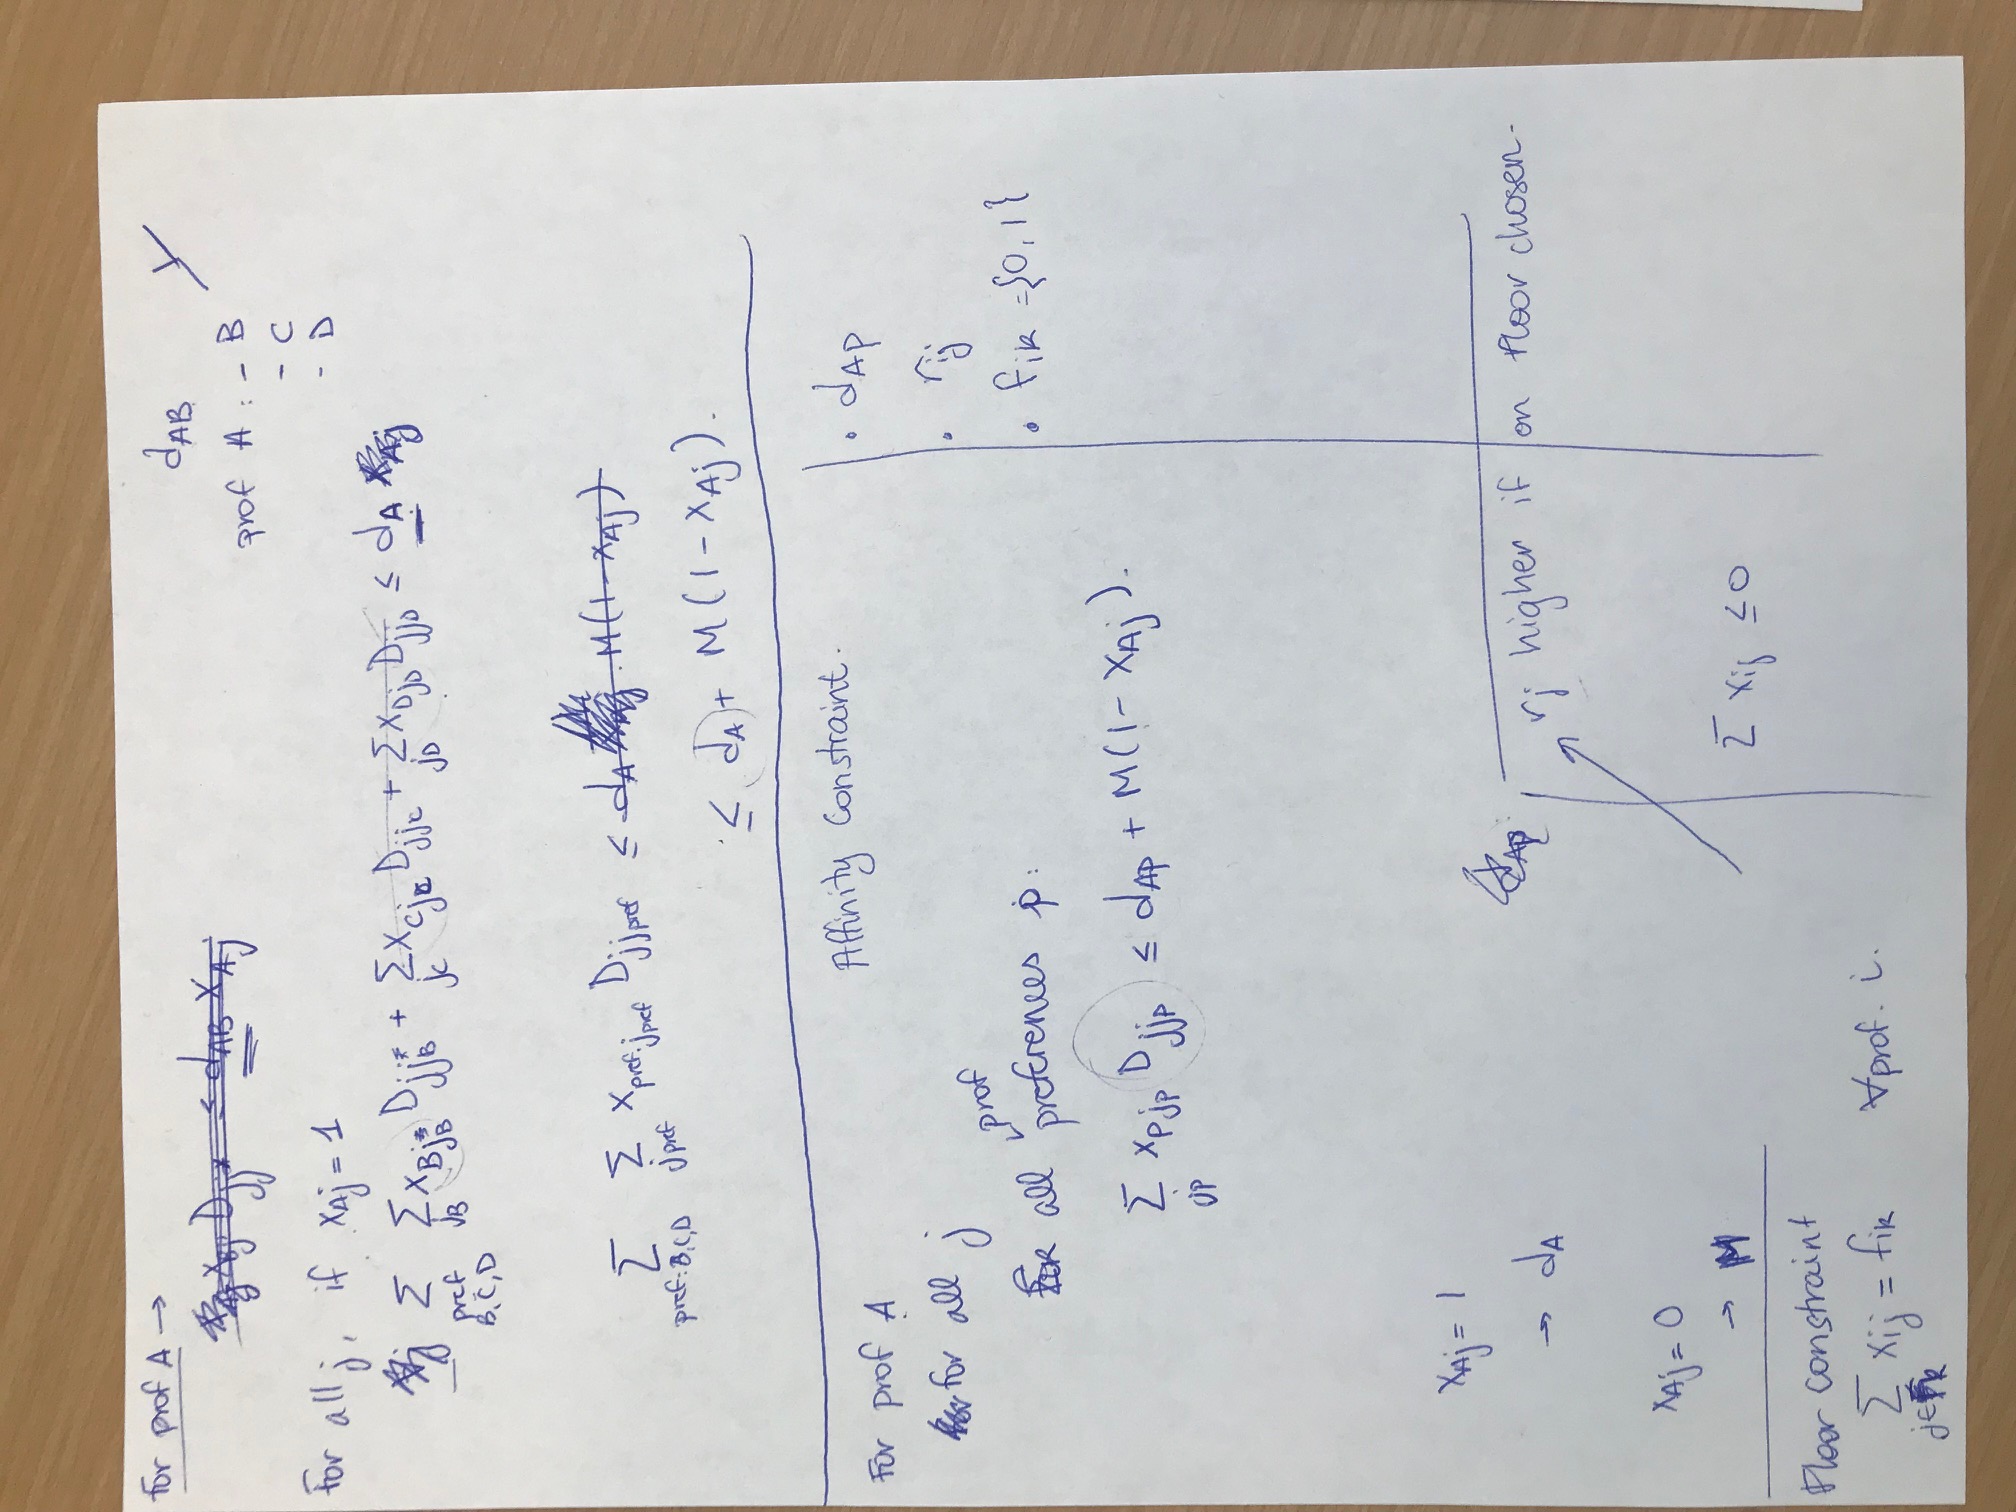 For prof A →
x_Aj x_Bj D_jj* ≤ d_AB x_Aj
d_AB
prof A : - B
- C
- D
For all j, if x_Aj = 1
Σ_{pref B, C, D} Σ_{j_B} x_{Bj*_B} D_{jj*_B} + Σ_{j_C} x_{Cj_C} D_{jj_C} + Σ_{j_D} x_{Dj_D} D_{jj_D} ≤ d_A
Σ_{pref: B, C, D} Σ_{j pref} x_{pref. j pref} D_{jj pref} ≤ d_A M(1 - x_Aj)
≤ d_A + M(1 - x_Aj).
Affinity Constraint.
For prof A
for all j
prof
For all preferences p:
Σ_{jp} x_{pjp} D_{jjp} ≤ d_AP + M(1 - x_Aj).
• d_AP
• r_ij
• f_ik = {0, 1}
x_Aj = 1
→ d_A
x_Aj = 0
→ M
d_Ap:
r_j higher if on floor chosen-
Σ x_ij ≤ 0
Floor constraint
Σ_{j∈F_k} x_ij = f_ik ∀ prof. i.